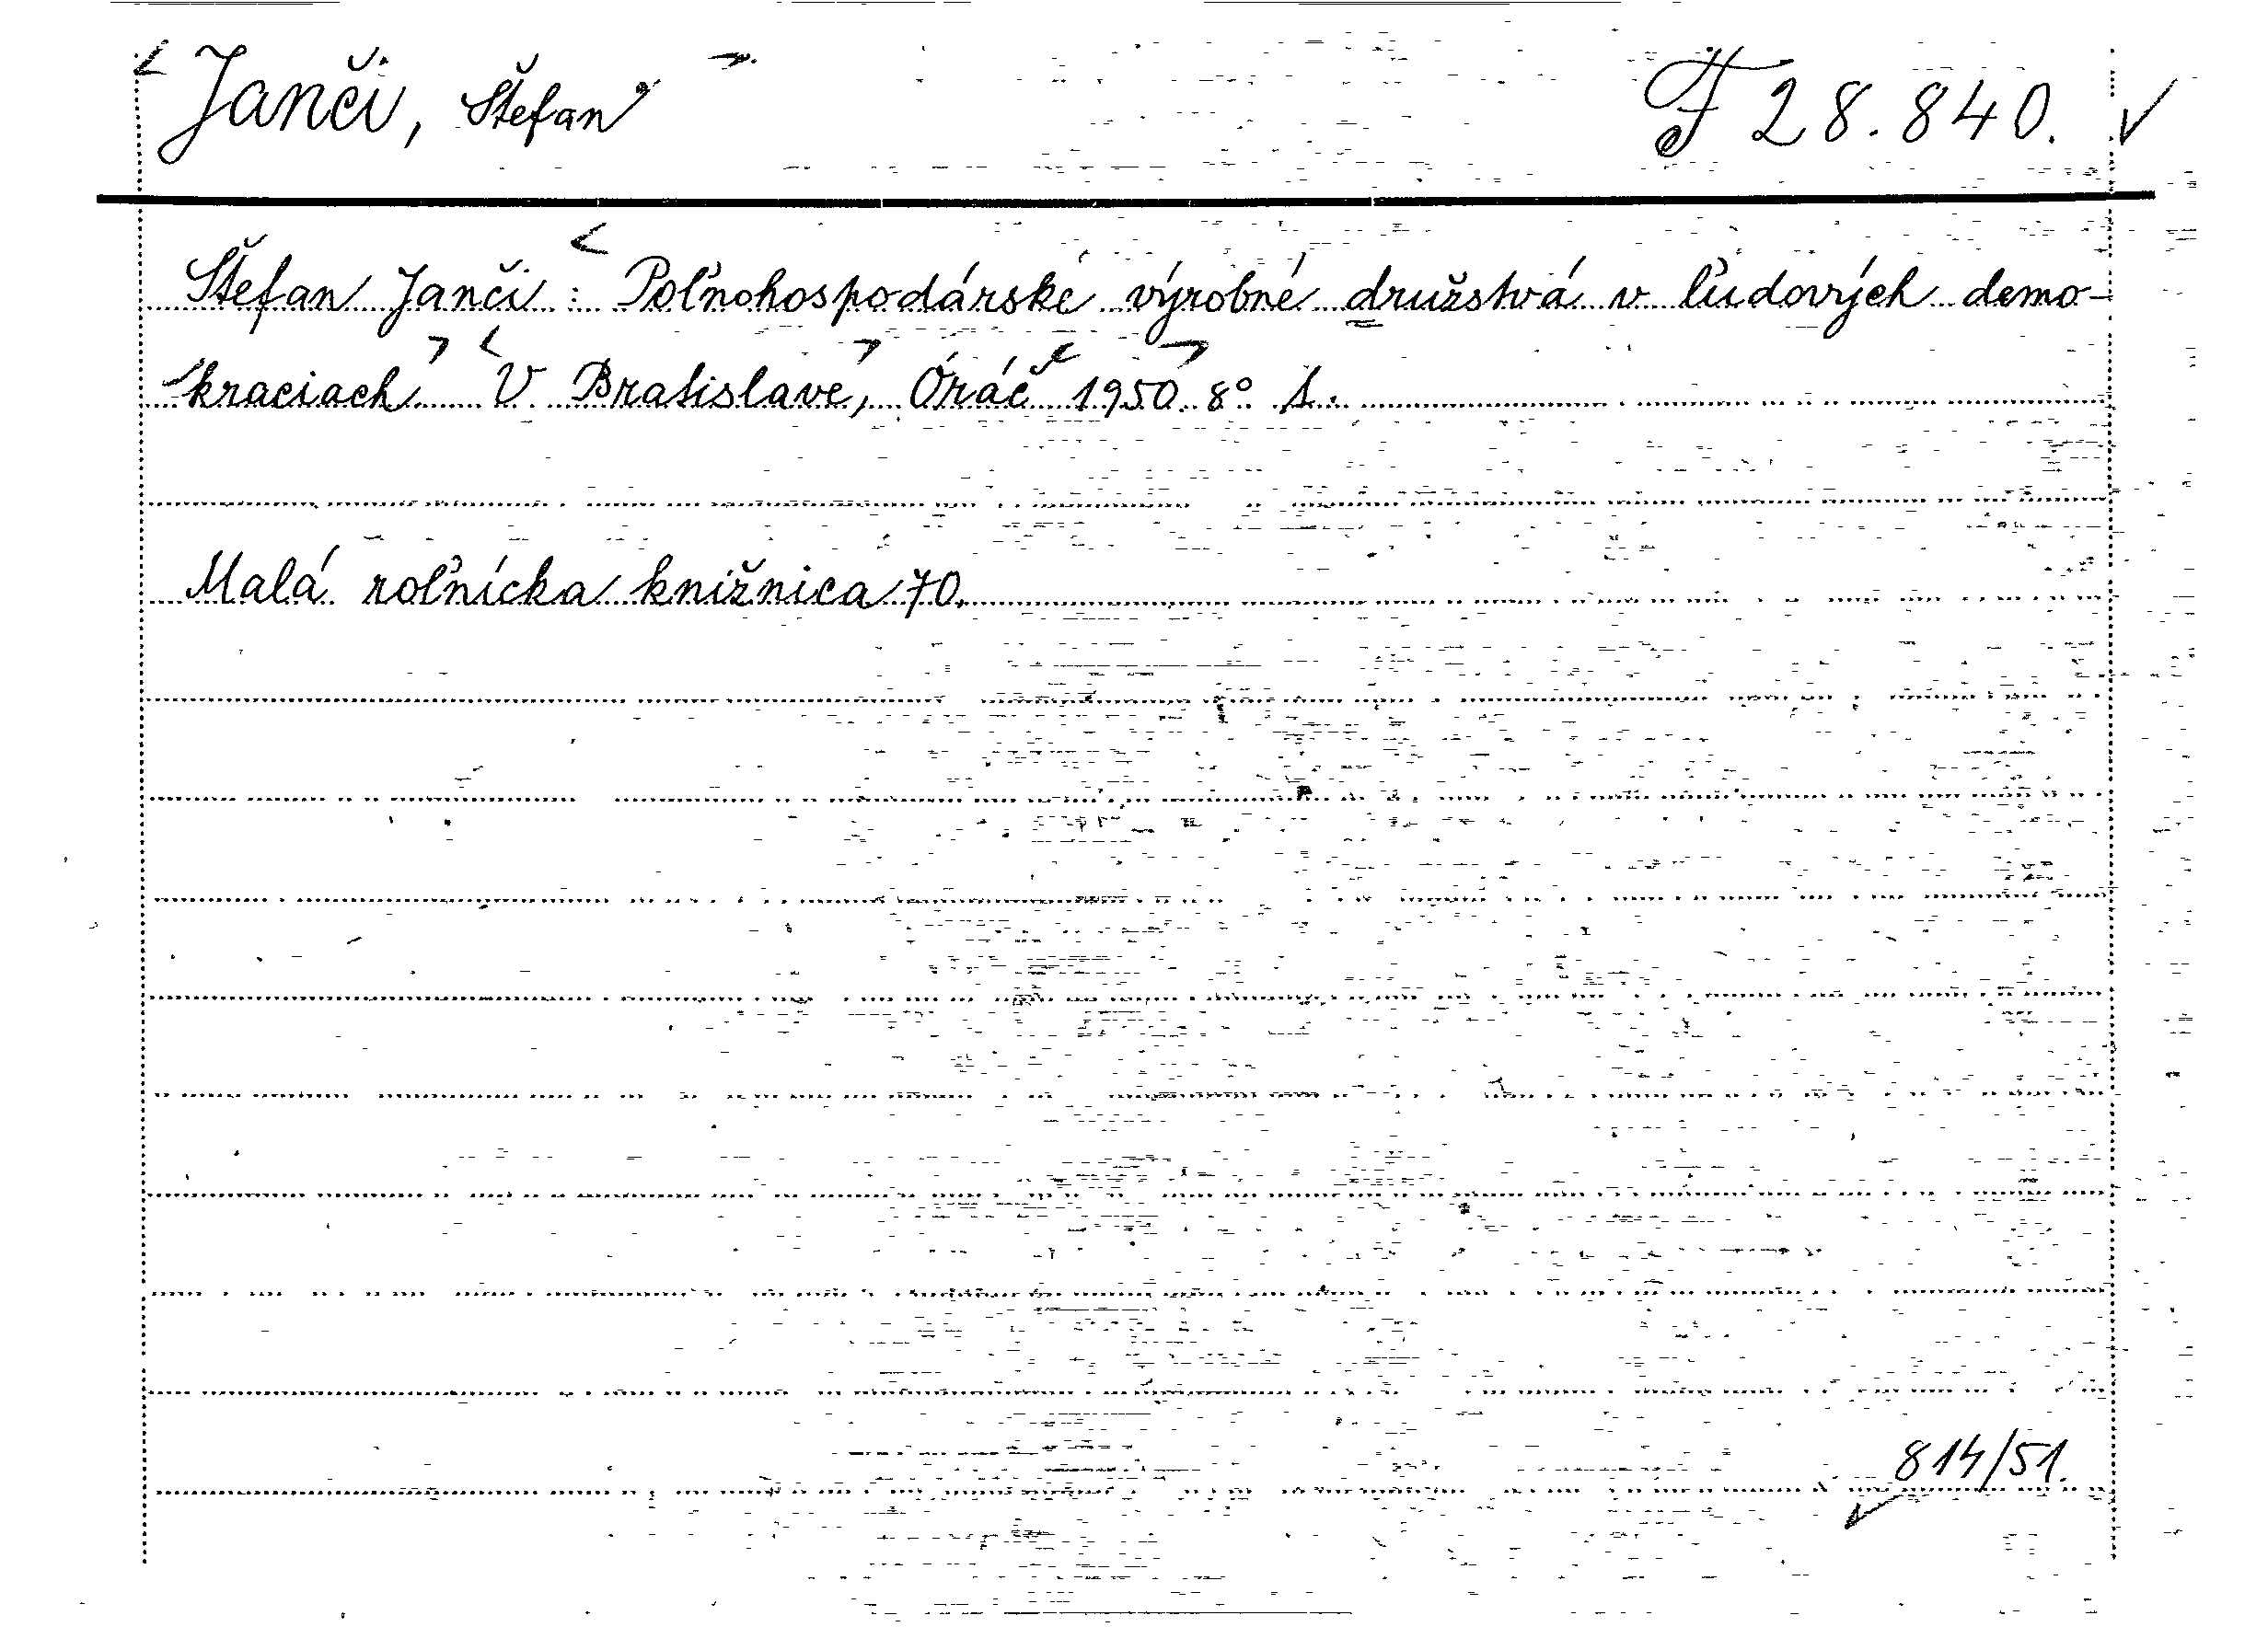 Janči, Štefan F 28.840.
Štefan Janči: Poľnohospodárske výrobné družstvá v ľudových demo-
kraciach. V Bratislave, Oráč 1950. 8° 1.
Malá roľnícka knižnica 70.
814/51.